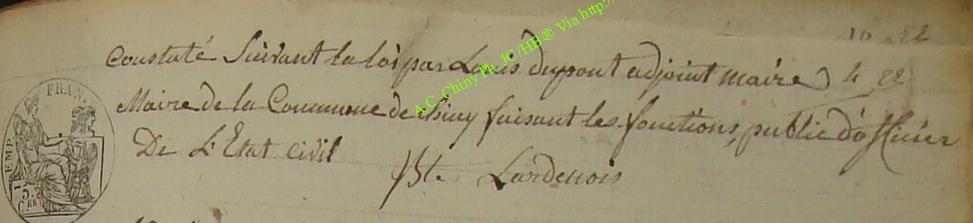 22
constaté Suivant la loi par Louis dupont adjoint maire
Maire de la Commune de Chiny faisant les fonctions, public d'officier
De L'Etat civil
JBte Lardenois
A.C. Chiny Ph. JC/HB® Via http:/
EMP. FRAN.
5.
C.ES